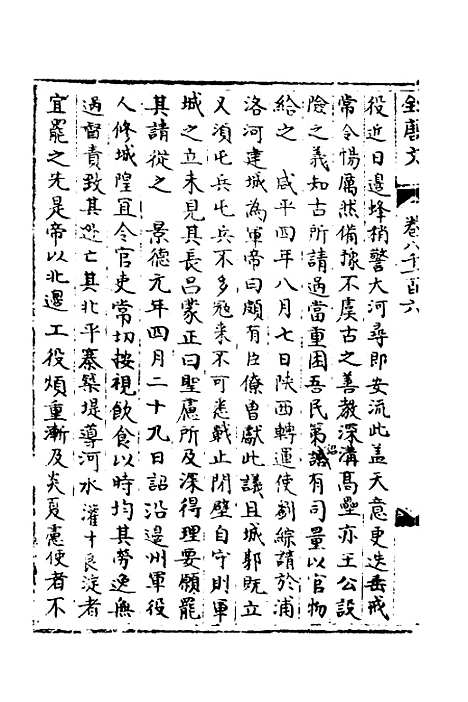 全唐文　卷八千一百六
役近日邊烽稍警大河尋即安流此蓋天意更迭垂戒
常令惕厲然備豫不虞古之善教深溝高壘亦王公設
險之義知古所請過當重困吾民第詔有司量以官物
給之　咸平四年八月七日陝西轉運使劉綜請於浦
洛河建城為軍帝曰頗有臣僚曾獻此議且城郭既立
又須屯兵屯兵不多寇來不可出戰止閉壁自守則軍
城之立未見其長呂蒙正曰聖慮所及深得理要願罷
其請從之　景德元年四月二十九日詔沿邊州軍役
人修城隍宜令官吏常切按視飲食以時均其勞逸無
過督責致其逃亡其北平寨築堤導河水灌才良淀者
宜罷之先是帝以北邊工役煩重漸及炎夏憲使者不